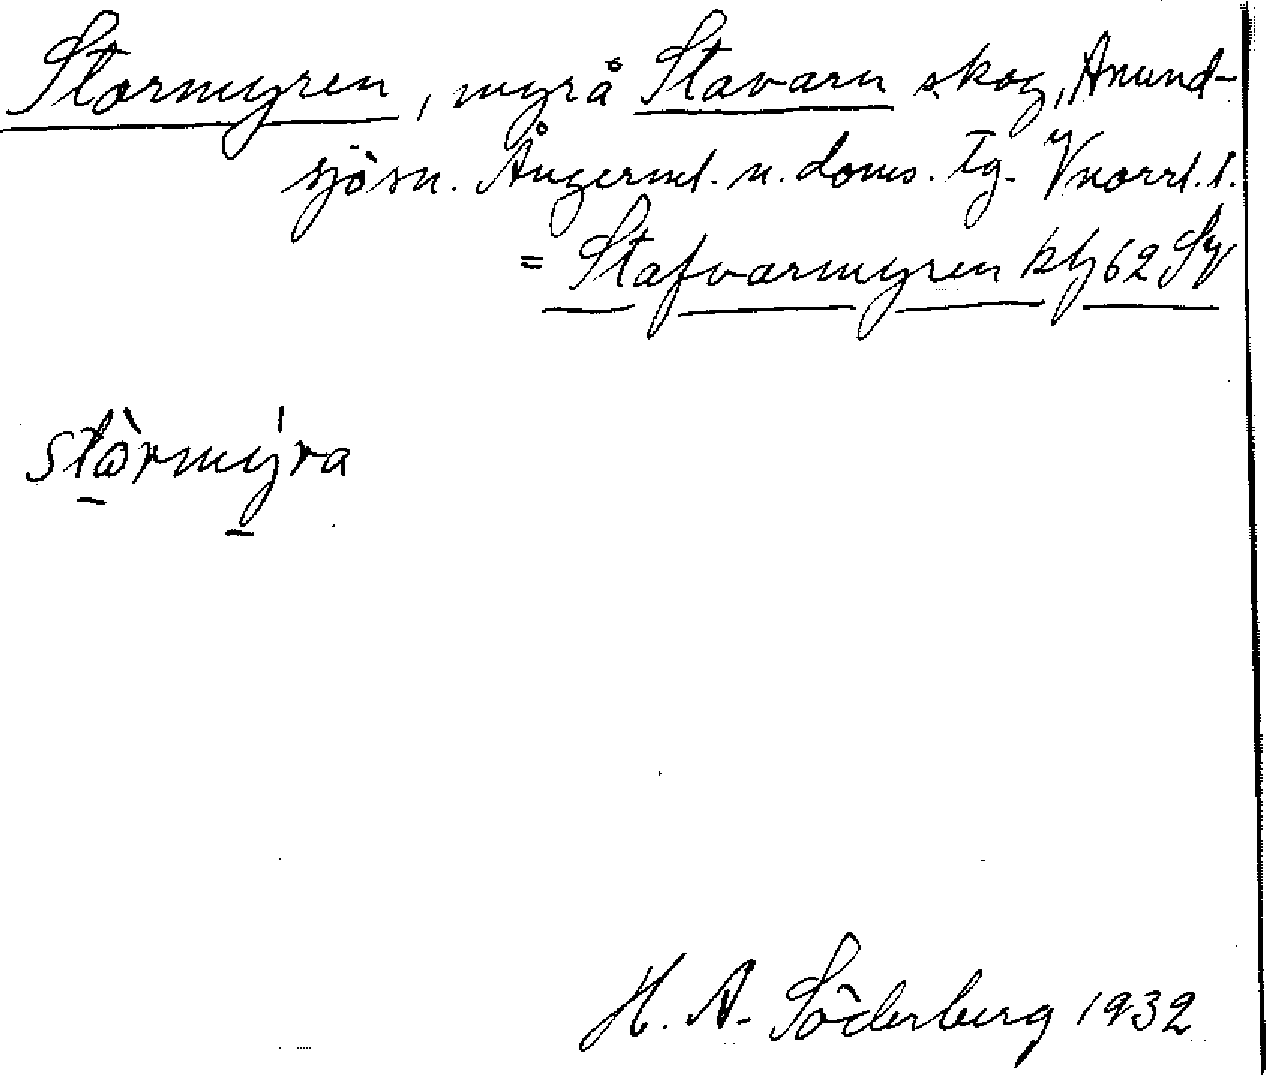 Stormyren, myr å Stavarn skog, Anund-
sjösn. Ångerml. n. doms. tg. Vnorrl. l.
= Stafvarmyren kbl 62 Sy
stòrmýra
H. A. Söderberg 1932